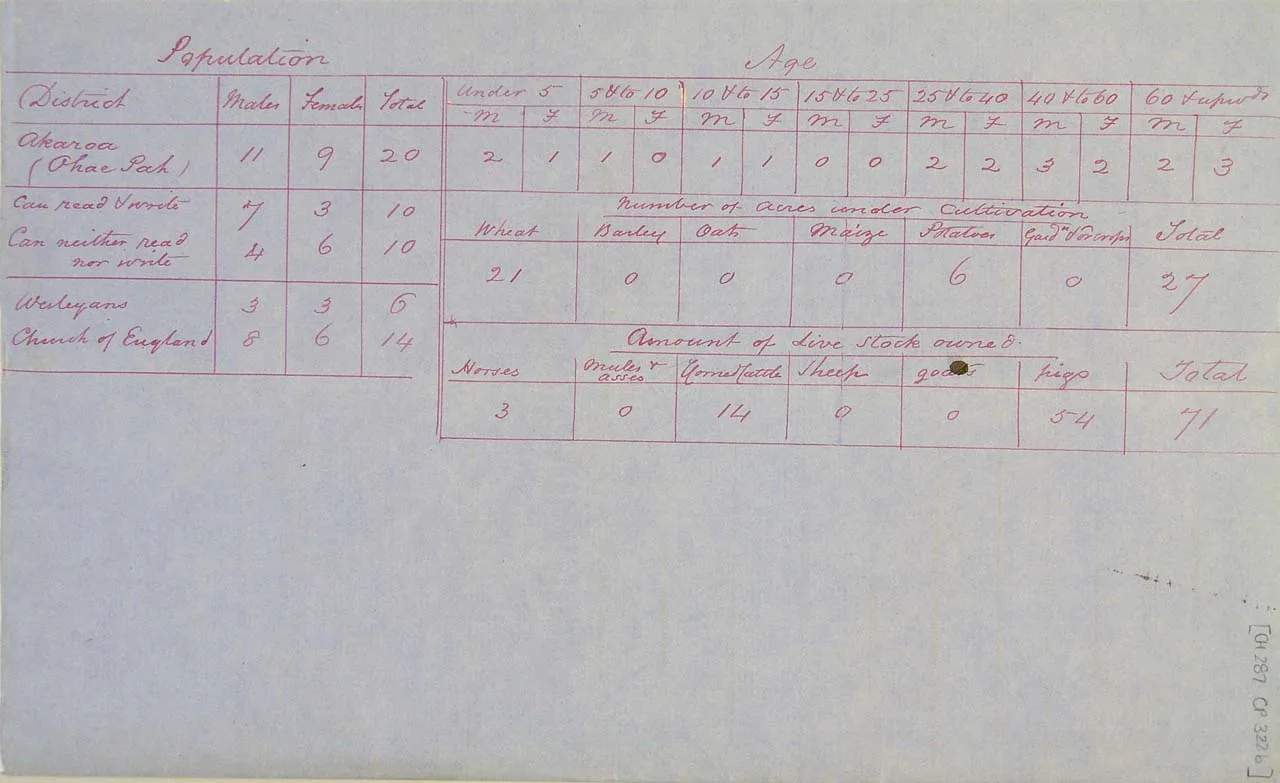 Population
District Males Females Total
Akaroa
(Ohae Pah) 11 9 20
Can read & write 7 3 10
Can neither read
nor write 4 6 10
Wesleyans 3 3 6
Church of England 8 6 14
Age
Under 5 5 & to 10 10 & to 15 15 & to 25 25 & to 40 40 & to 60 60 & upwds
M F M F M F M F M F M F M F
2 1 1 0 1 1 0 0 2 2 3 2 2 3
Number of Acres under Cultivation
Wheat Barley Oats Maize Potatoes Total
21 0 0 0 6 0 27
Amount of Live Stock owned.
Horses Mules &
asses Horned Cattle Sheep goats pigs Total
3 0 14 0 0 54 71
[CH 287 CP 322b]